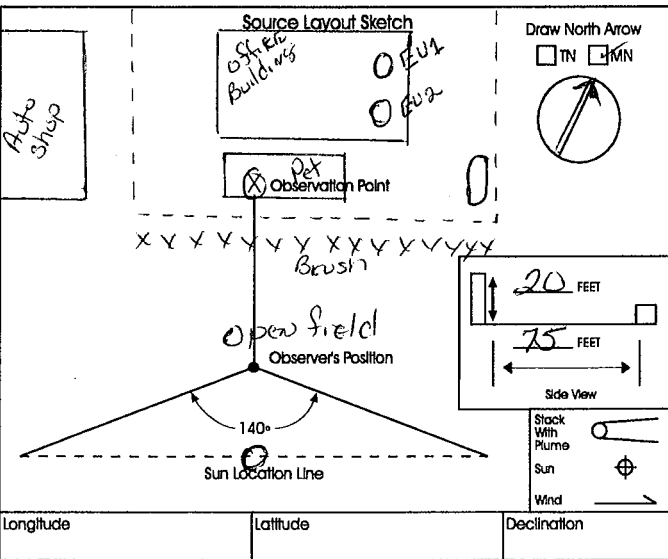 Source Layout Sketch
Draw North Arrow
TN MN
Office
Building
EU1
EU2
Auto
shop
Pet
X Observation Point
X Y X Y X Y X X X Y X Y Y X X
Brush
20 FEET
75 FEET
Side View
Open field
Observer's Position
140°
Sun Location Line
Stack
With
Plume
Sun
Wind
Longitude
Latitude
Declination